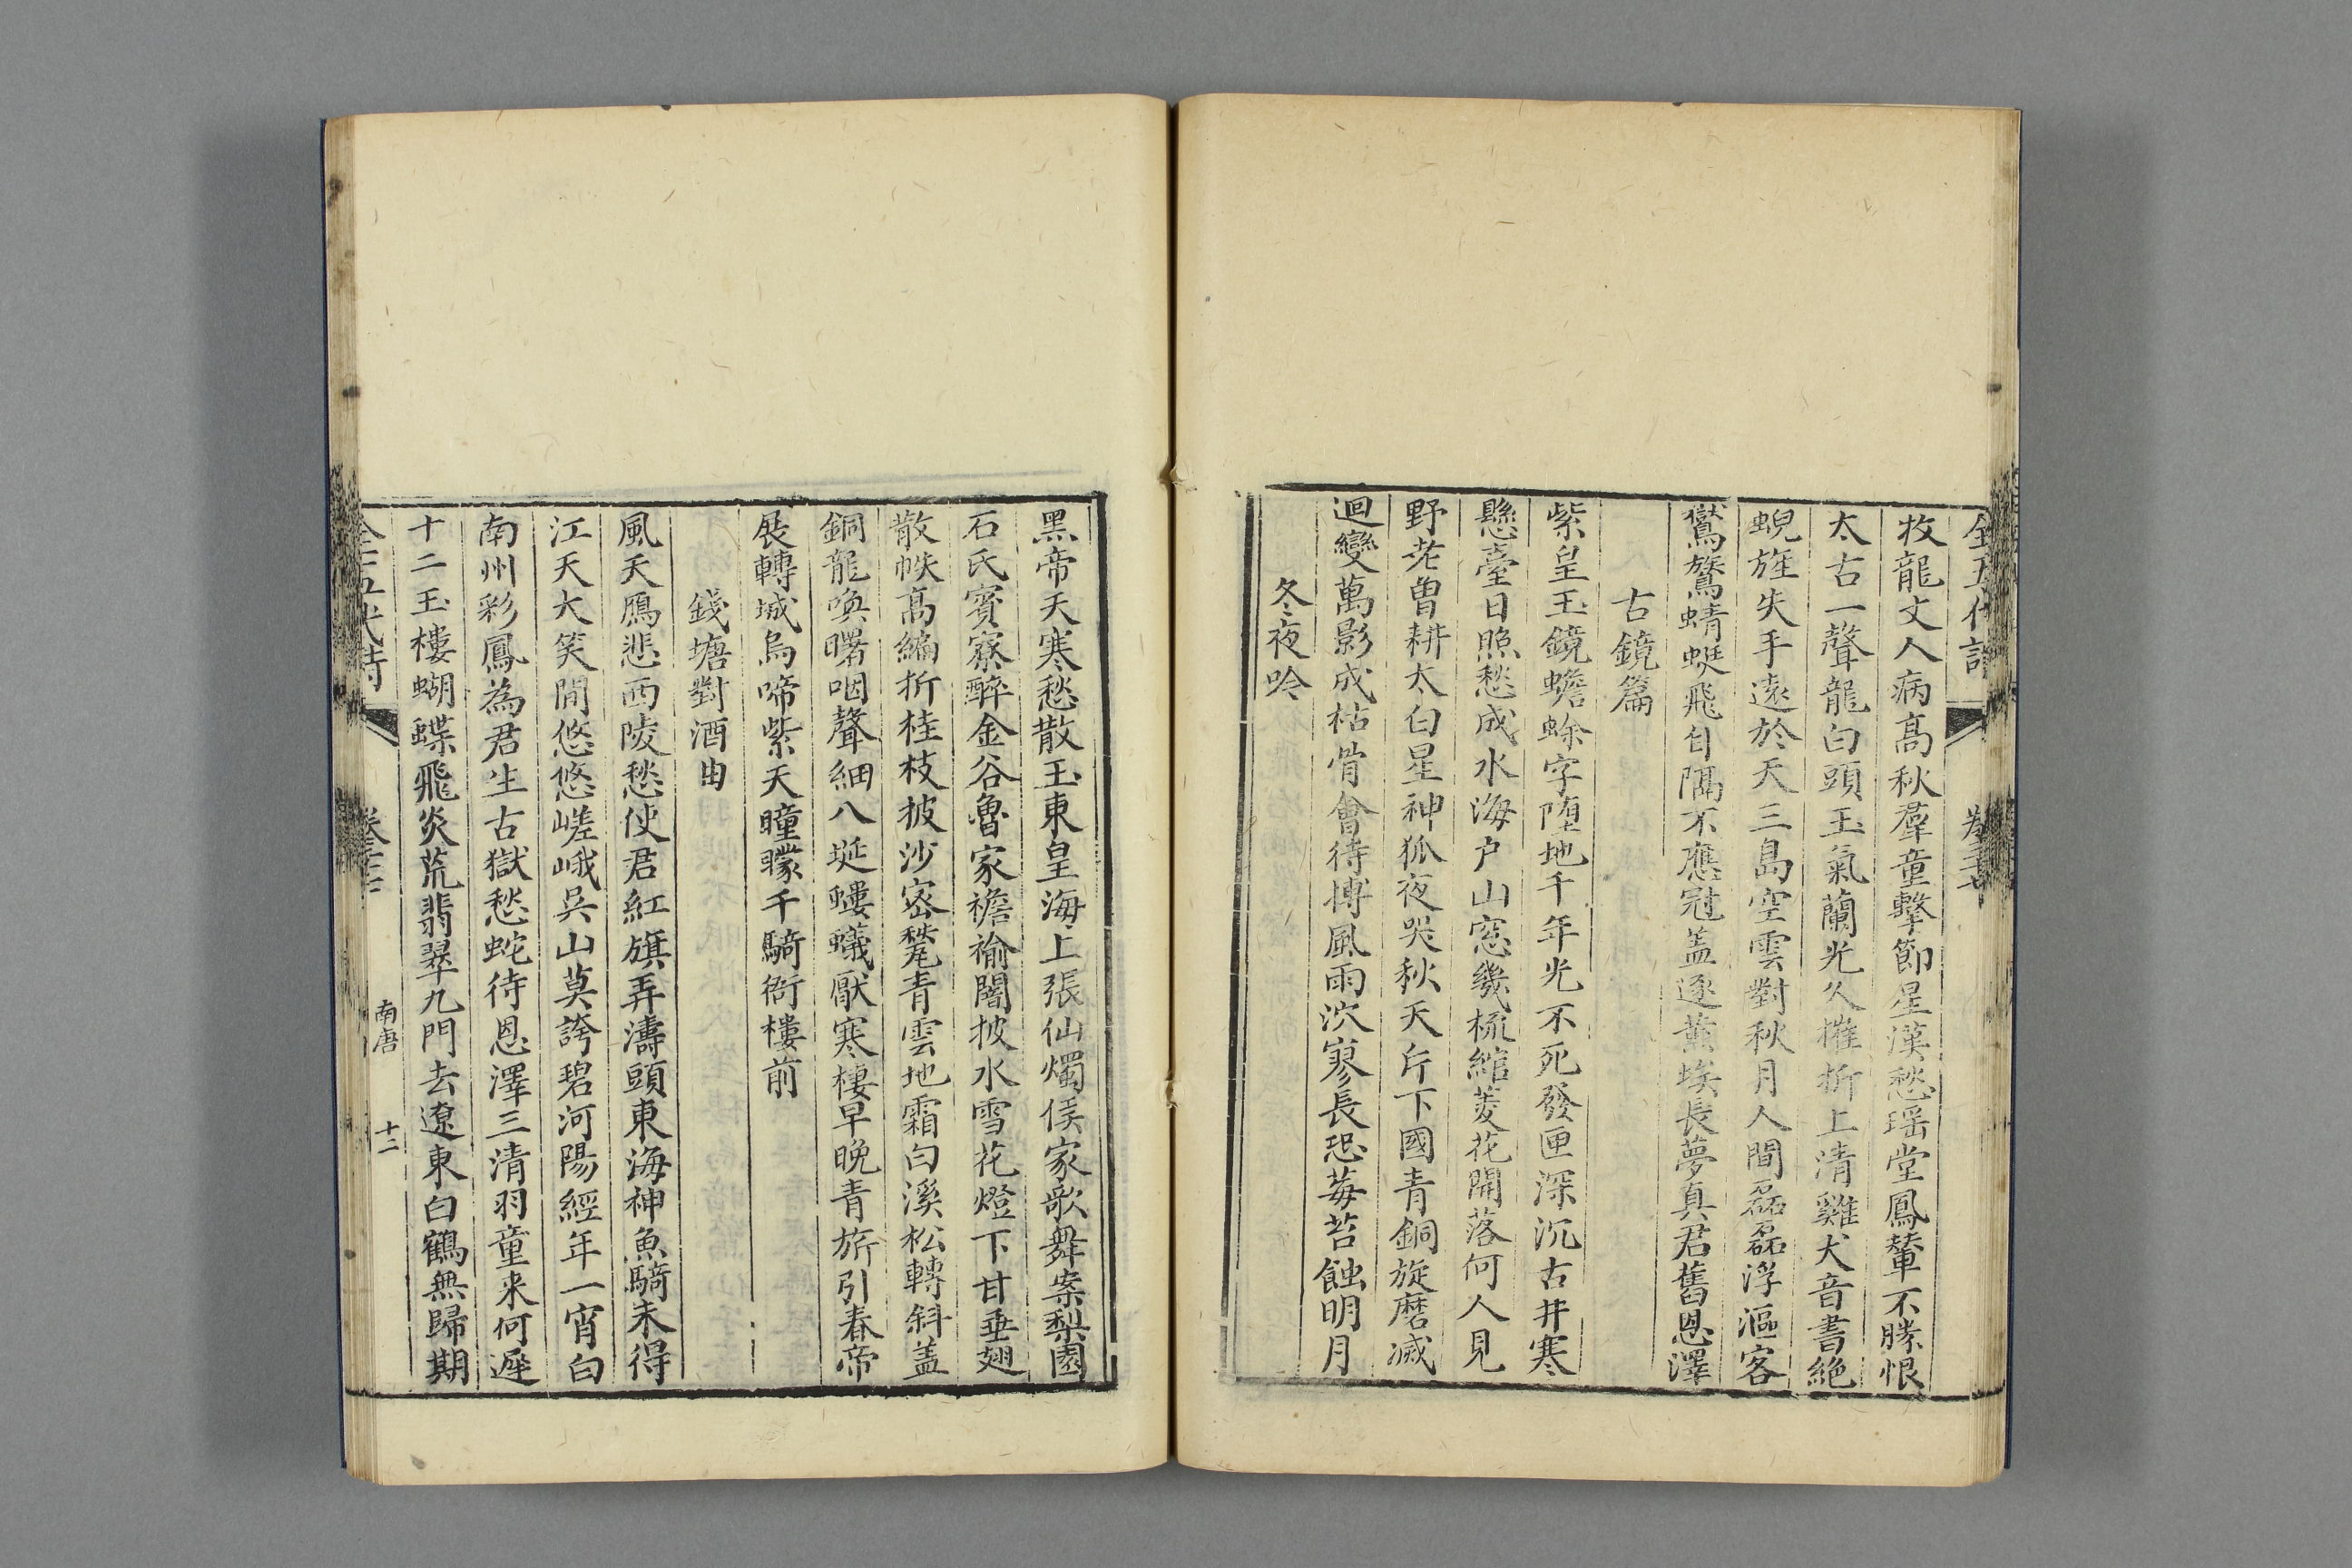 牧龍丈人病高秋羣童擊節星漢愁瑶堂鳳輦不勝恨
太古一聲龍白頭玉氣蘭光久摧折上清雞犬音書絶
蜺旌失手遠於天三島空雲對秋月人間磊磊浮漚客
鸑鷟蜻蜓飛自隔不應冠蓋逐黄埃長夢真君舊恩澤
古鏡篇
紫皇玉鏡蟾蜍字堕地千年光不死發匣深沉古井寒
懸臺日照愁成水海户山窓幾梳綰菱花開落何人見
野老曽耕太白星神狐夜哭秋天片下國青銅旋磨滅
迴變萬影成枯骨會待摶風雨泬寥長恐莓苔蝕明月
冬夜吟
黑帝天寒愁散玉東皇海上張仙燭侯家歌舞案梨園
石氏賓寮醉金谷魯家襜褕闇披水雪花燈下甘垂翅
散帙高編折桂枝披沙密𣰦青雲地霜白溪松轉斜蓋
銅龍喚曙咽聲細八埏螻蟻厭寒棲早晚青旂引春帝
展轉城烏啼紫天曈曚千騎衙樓前
錢塘對酒曲
風天鴈悲西陵愁使君紅旗弄濤頭東海神魚騎未得
江天大笑閒悠悠嵯峨吳山莫誇碧河陽經年一宵白
南州彩鳳為君生古獄愁蛇待恩澤三清羽童来何遲
十二玉樓蝴蝶飛炎荒翡翠九門去遼東白鶴無歸期
全五代詩
南唐
十二